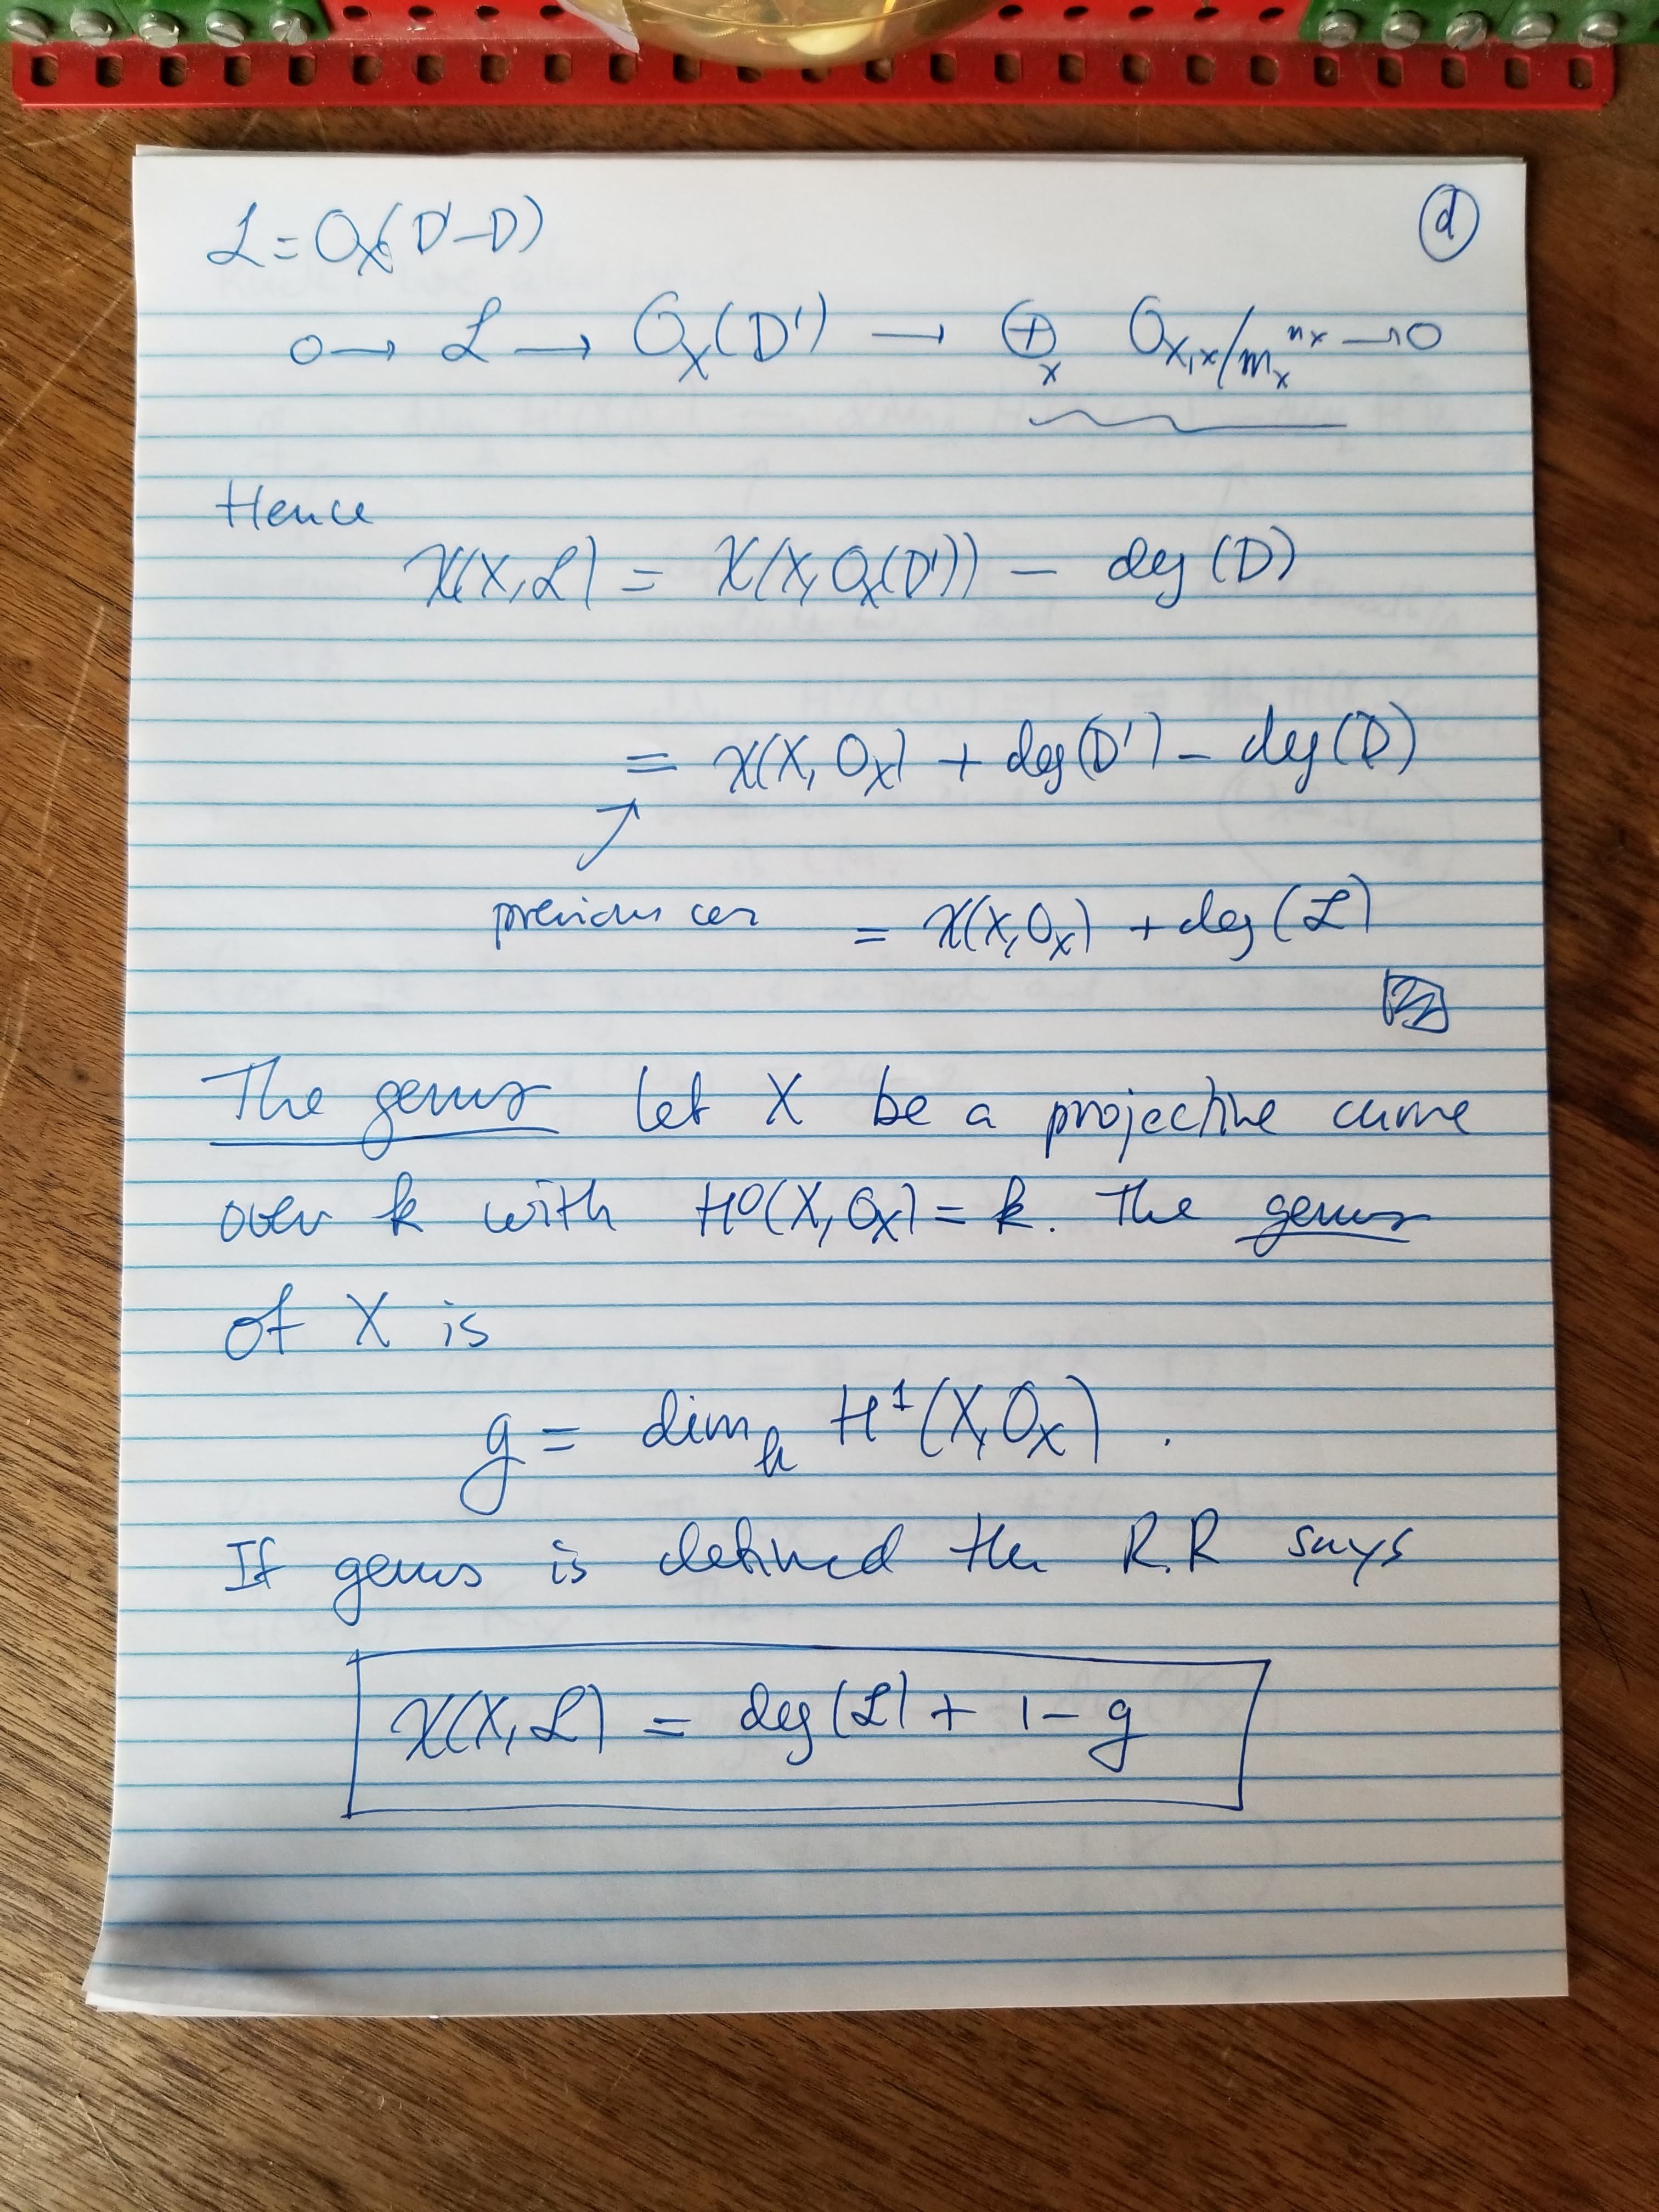 ℒ = O_X(D'-D) ⓓ
0 → ℒ → O_X(D') → ⊕_x O_{X,x}/m_x^{n_x} → 0
Hence
χ(X,ℒ) = χ(X,O_X(D')) - deg(D)
= χ(X,O_X) + deg(D') - deg(D)
previous cor = χ(X,O_X) + deg(ℒ)
The genus Let X be a projective curve
over k with H⁰(X,O_X) = k. The genus
of X is
g = dim_k H¹(X,O_X).
If genus is defined then R.R says
χ(X,ℒ) = deg(ℒ) + 1 - g